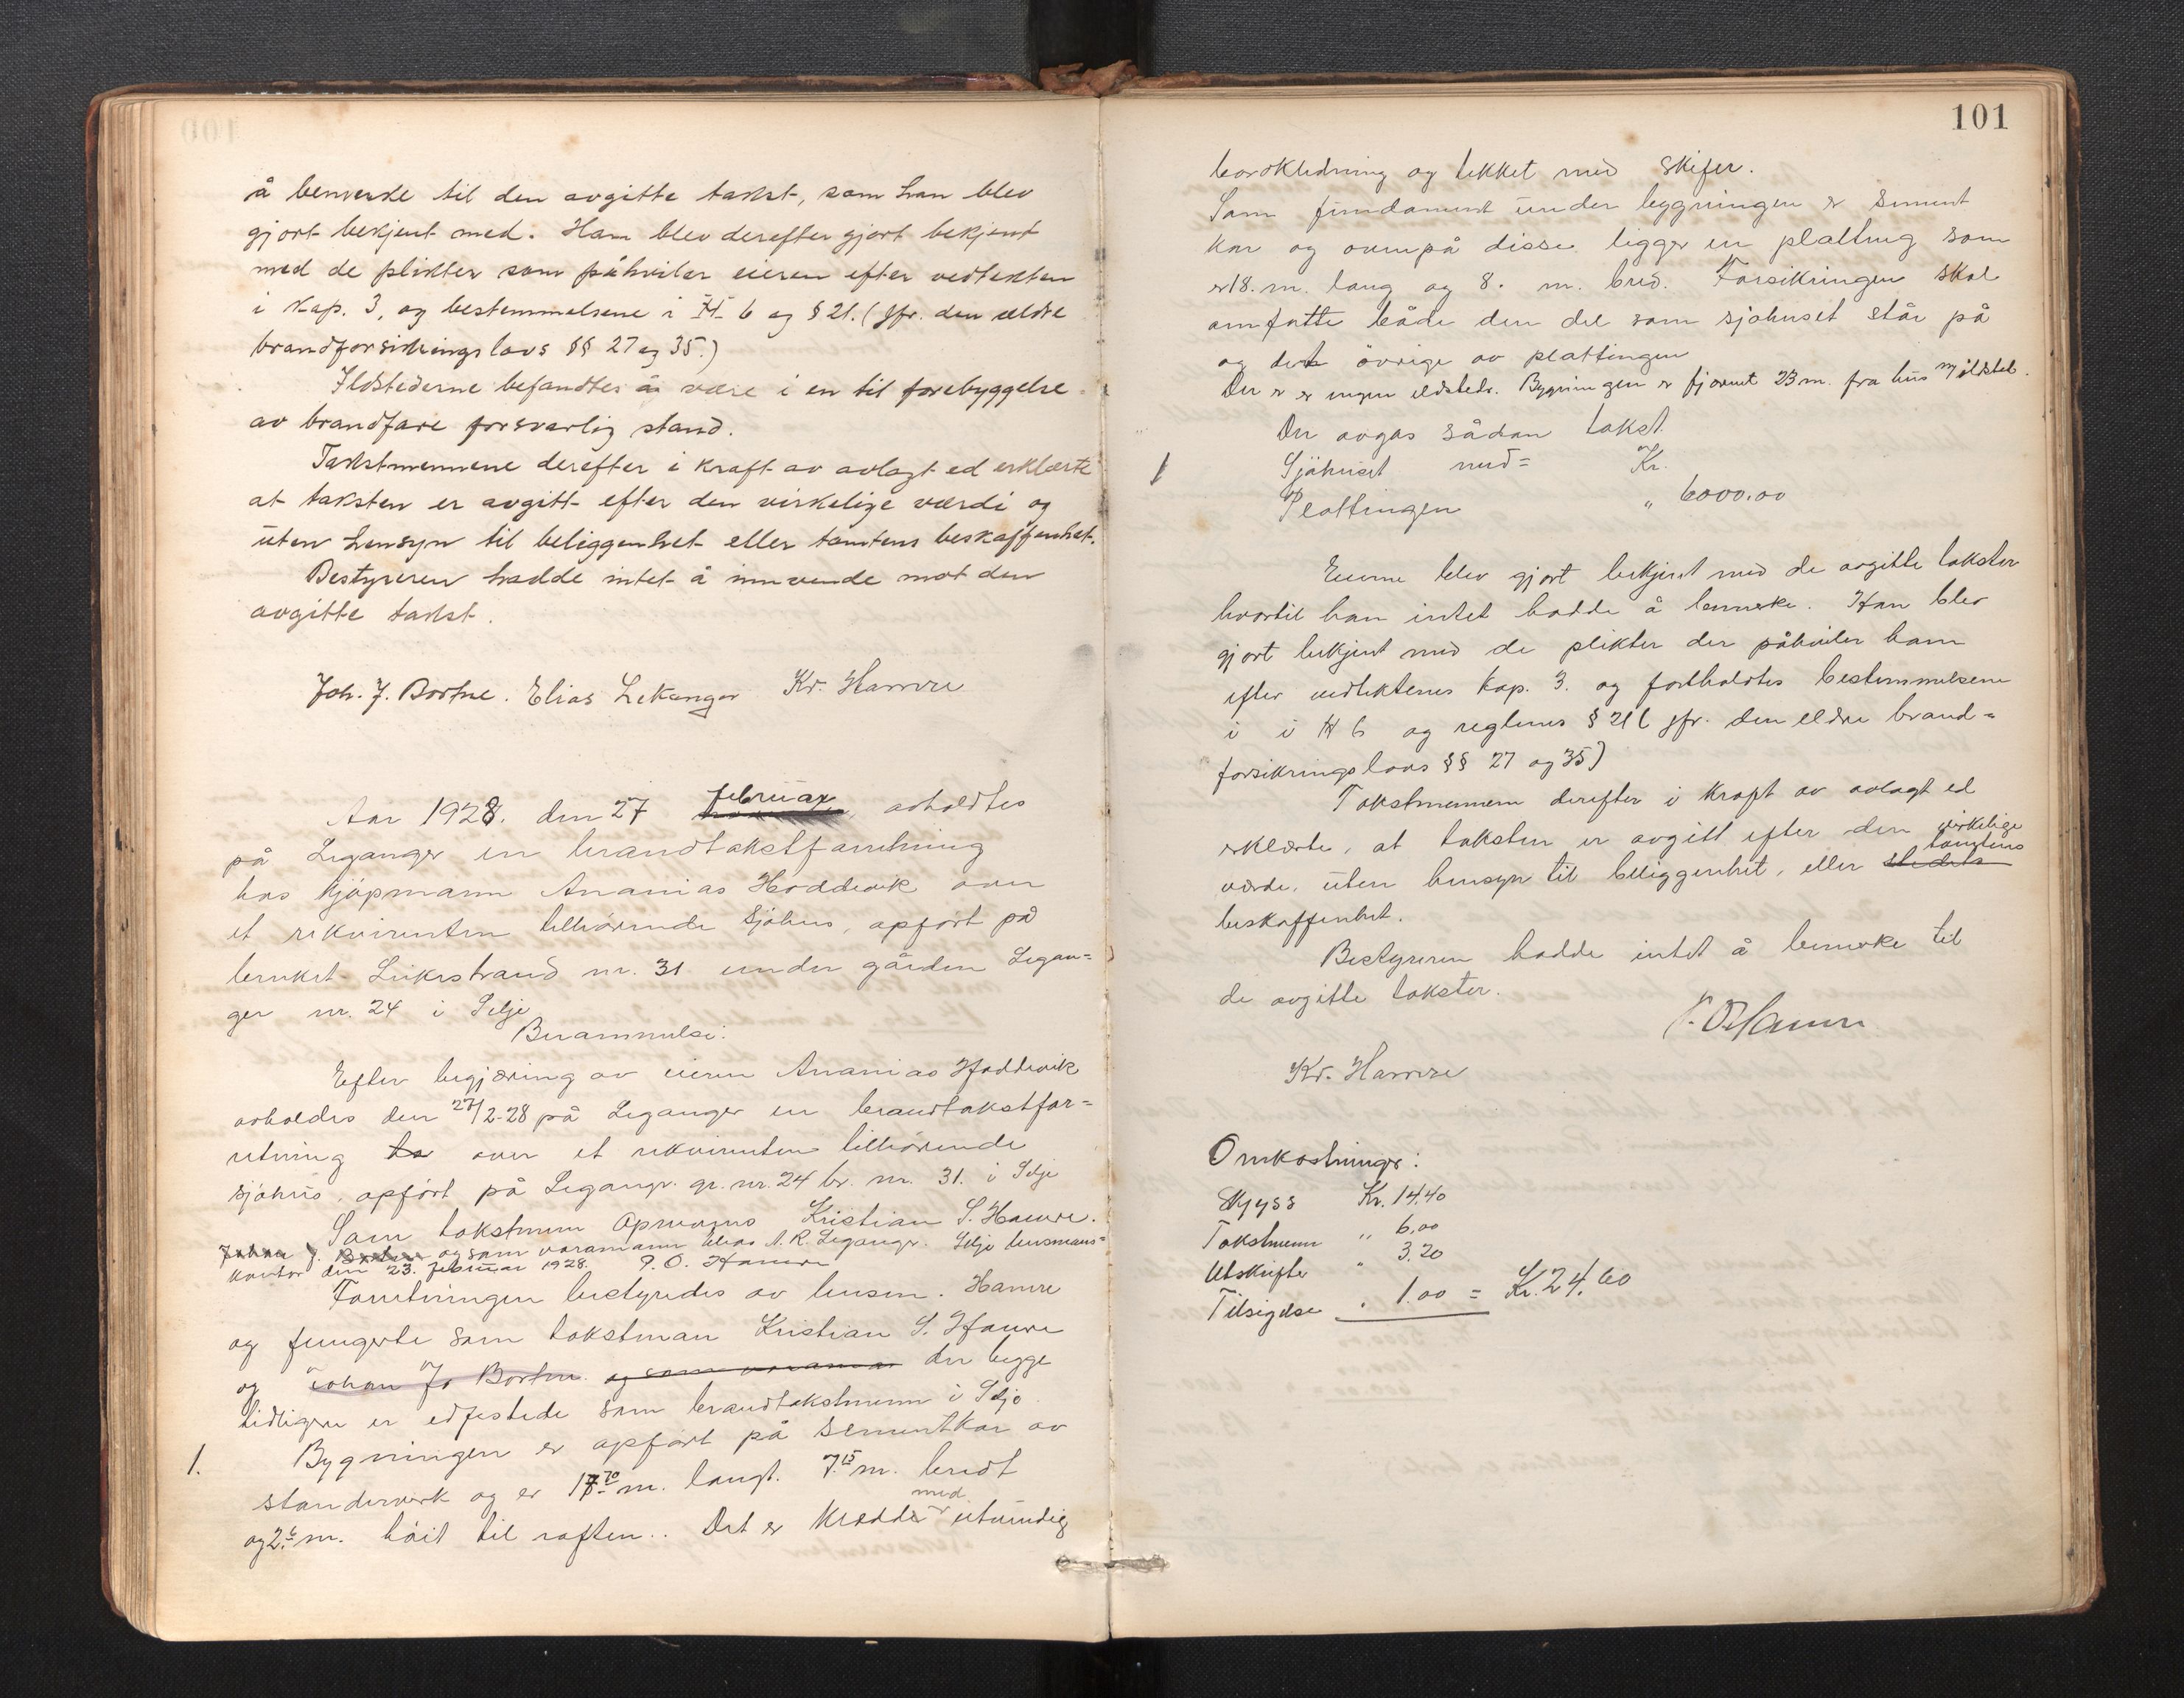 å bemerke til den avgitte takst, som han blev
gjort bekjent med. Han blev derefter gjort bekjent
med de plikter som påhviler eieren efter vedtekten
i Kap. 3, og bestemmelsene i H 6 og § 21. (Jfr. den ældre
brandforsikringslovs §§ 27 og 35.)
Ildstederne befandtes å være i en til forebyggelse
av brandfare forsvarlig stand.
Takstmennene derefter i kraft av avlagt ed erklærte
at taksten er avgitt efter den virkelige værdi og
uten hensyn til beliggenhet eller tomtens beskaffenhet.
Bestyreren hadde intet å innvende mot den
avgitte takst.
Joh. J. Bortne. Elias Lekanger Kr. Hamre
Aar 1928. den 27 februar avholdtes
på Leganger en brandtakstforretning
hos Kjøpmann Ananias Hoddevik over
et rekvirenten tilhørende Sjøhus, opført på
bruket Leikestrand nr. 31 under gården Legan=
ger nr. 24 i Selje
Berammelse:
Efter begjæring av eieren Ananias Hoddevik
avholdes den 27/2-28 på Leganger en brandtakstfor=
retning over et rekvirenten tilhørende
sjøhus, opført på Leganger gr. nr. 24 br. nr. 31. i Selje
Som takstmenn opnevnes Kristian S. Hamre.
Johan J. Bortne og som varamann Elias A. R. Leganger. Selje lensmans=
kontor den 23. februar 1928. P. O. Hamre
Forretningen bestyredes av lensm. Hamre
og fungerte som takstman Kristian S. Hamre
og Johan Jo Bortne. og som varaman der begge
tidligere er edfestede som brandtakstmenn i Selje
1. Bygningen er opført på sementkar av
standerverk og er 17.70 m. langt. 7.15 m. bredt
og 2.6 m. høit til raften.. Det er kledd med utvendig
101
bordkledning og tekket med skifer.
Som fundament under bygningen er sement
kar og ovenpå disse ligger en platting som
er 18. m. lang og 8. m. bred. Forsikringen skal
omfatte både den del som sjøhuset står på
og det øvrige av plattingen
Der er er ingen ildsteder. Bygningen er fjernet 23 m. fra hus m/ildsted.
Der avgas sådan takst.
1 Sjøhuset med= Kr.
Plattingen " 6000.00
Eierne blev gjort bekjent med de avgitte takster
hvortil han intet hadde å bemerke. Han blev
gjort bekjent med de plikter der påhviler ham
efter vedtektenes Kap. 3. og foreholdtes bestemmelsene
i i H 6 og reglenes § 21 ( jfr. den eldre brand=
forsikringslovs §§ 27 og 35)
Takstmennene derefter i kraft av avlagt ed
erklærte, at taksten er avgitt efter den virkelige
værde, uten hensyn til beliggenhet, eller stedets tomtens
beskaffenhet.
Bestyreren hadde intet å bemerke til
de avgitte takster.
P. O. Hamre
Kr. Hamre
Omkostninger:
Skyss Kr. 14.40
Takstmenn " 6.00
Utskrifter " 3.20
Tilsigelse " 1.00 = Kr. 24.60